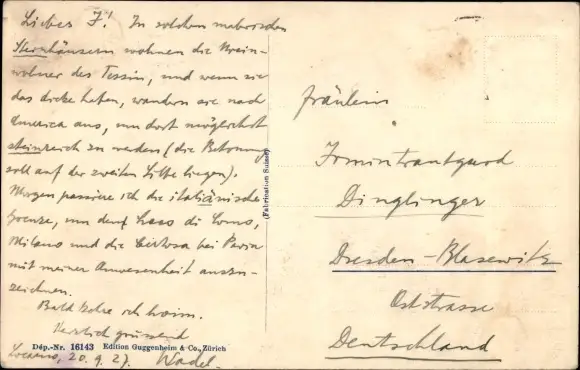 Liebes I! In solchen malerischen
Steinhäusern wohnen die Einwohner
wohner des Tessin, und wenn sie
das dicke haben, wandern sie nach
America aus, um dort möglichst
steinreich zu werden (die Betonung
soll auf der zweiten Silbe liegen).
Morgen passiere ich die italiänische
Grenze, um den Lago di Como,
Milano und die Certosa bei Pavia
mit meiner Anwesenheit auszu-
zeichnen.
Bald kehre ich heim.
Herzlich grüssend
Locarno, 20.9.27. Wadel.
Dép.-Nr. 16143 Edition Guggenheim & Co., Zürich
(Fabrication Suisse)
Fräulein
Irmintrautgard
Dinglinger
Dresden-Blasewitz
Oststrasse
Deutschland